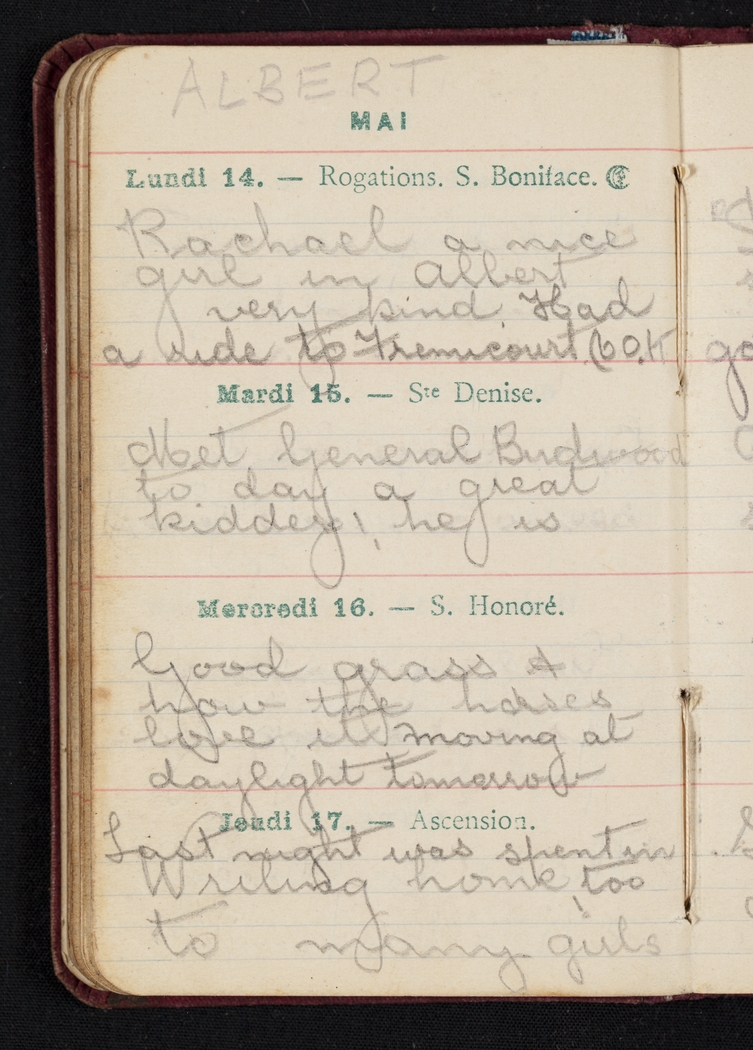 ALBERT
MAI
Lundi 14. — Rogations. S. Boniface.
Rachael a nice
girl in Albert
very kind Had
a ride to Fremicourt
Mardi 15. — Ste Denise.
Met General Birdwood
to day a great
kidder, he is
Mercredi 16. — S. Honoré.
Good grass &
how the horses
love it moving at
daylight tomorrow
Jeudi 17. — Ascension.
Last night was spent in
Writing home, too
to many girls